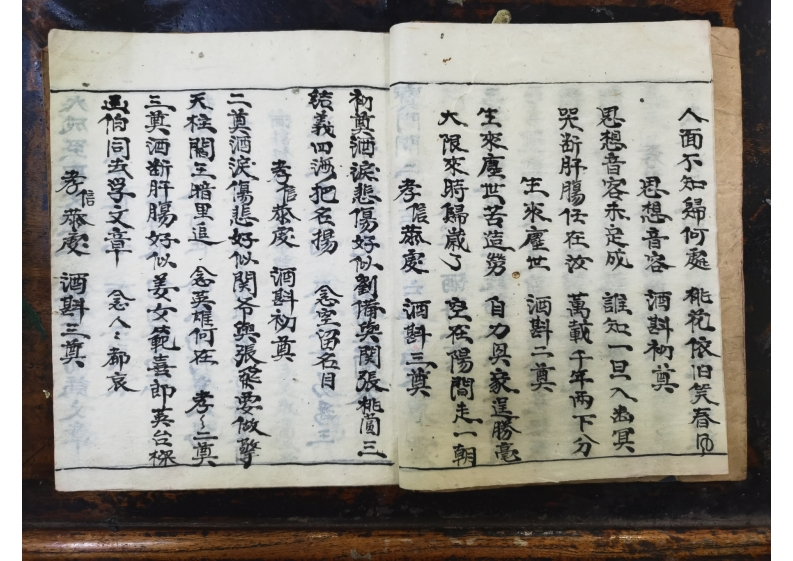 人面不知歸何處 桃花依旧笑春风
思想音容 酒斟初奠
思想音容未定成 誰知一旦入幽冥
哭断肝腸任在汝 萬載千年两下分
生來塵世 酒斟二奠
生來塵世苦造勞 自力與家逞勝毫
大限來時歸歲了 空在陽間走一朝
孝信恭處 酒斟三奠
初奠酒淚悲傷好似劉備與関張桃園三
結義四海把名揚 念空留名目
孝信恭處 酒斟初奠
二奠酒淚傷悲好似関爷與張飛要做擎
天柱閻王暗里追 念英雄何在 孝〻二奠
三奠酒断肝腸好似姜女範喜郎英台梁
伯同去孚文章 念人〻都哀
孝信恭處 酒斟三奠